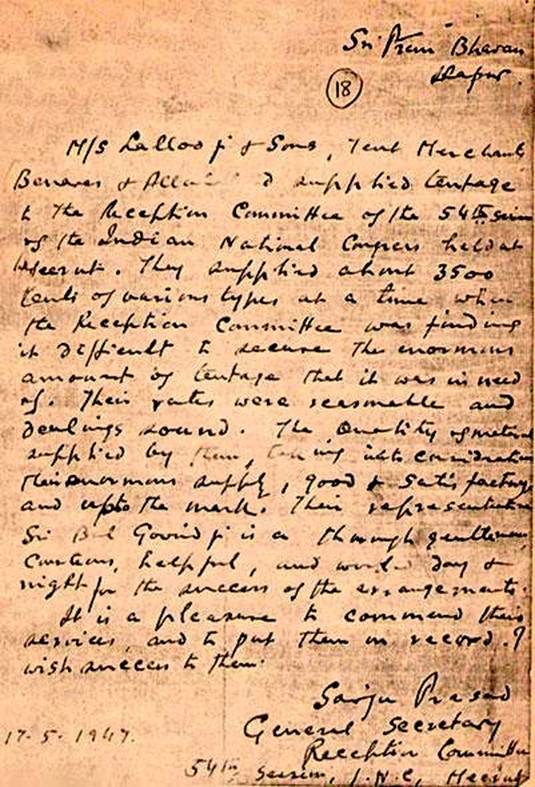 Sri Prem Bhavan
Hapur.
18
M/S Lalloo ji & Sons, Tent Merchants
Benares & supplied tentage
to the Reception Committee of the 54th session
of the Indian National Congress held at
Meerut. They supplied about 3500
tents of various types at a time when
the Reception Committee was finding
it difficult to secure the enormous
amount of tentage that it was in need
of. Their rates were reasonable and
dealings sound. The Quality of material
supplied by them, taking into consideration
their enormous supply, good & satisfactory
and upto the mark. Their representative
Sri Bal Govind ji is a thorough gentleman
Courteous, helpful, and worked day &
night for the success of the arrangements.
It is a pleasure to commend their
services, and to put them on record. I
wish success to them.
Sarju Prasad
General Secretary
17-5-1947.
Reception Committee
54th Session, I.N.C, Meerut